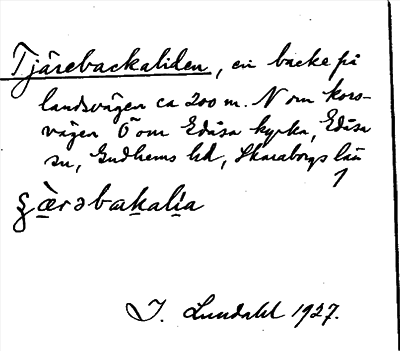 Tjärebackaliden, en backe på
landsvägen ca 200 m. N om kors-
vägen Ö om Edåsa kyrka, Edåsa
sn, Gudhems hd, Skaraborgs län
1
ʂæ̀rəbakalia
I. Lundahl 1927.